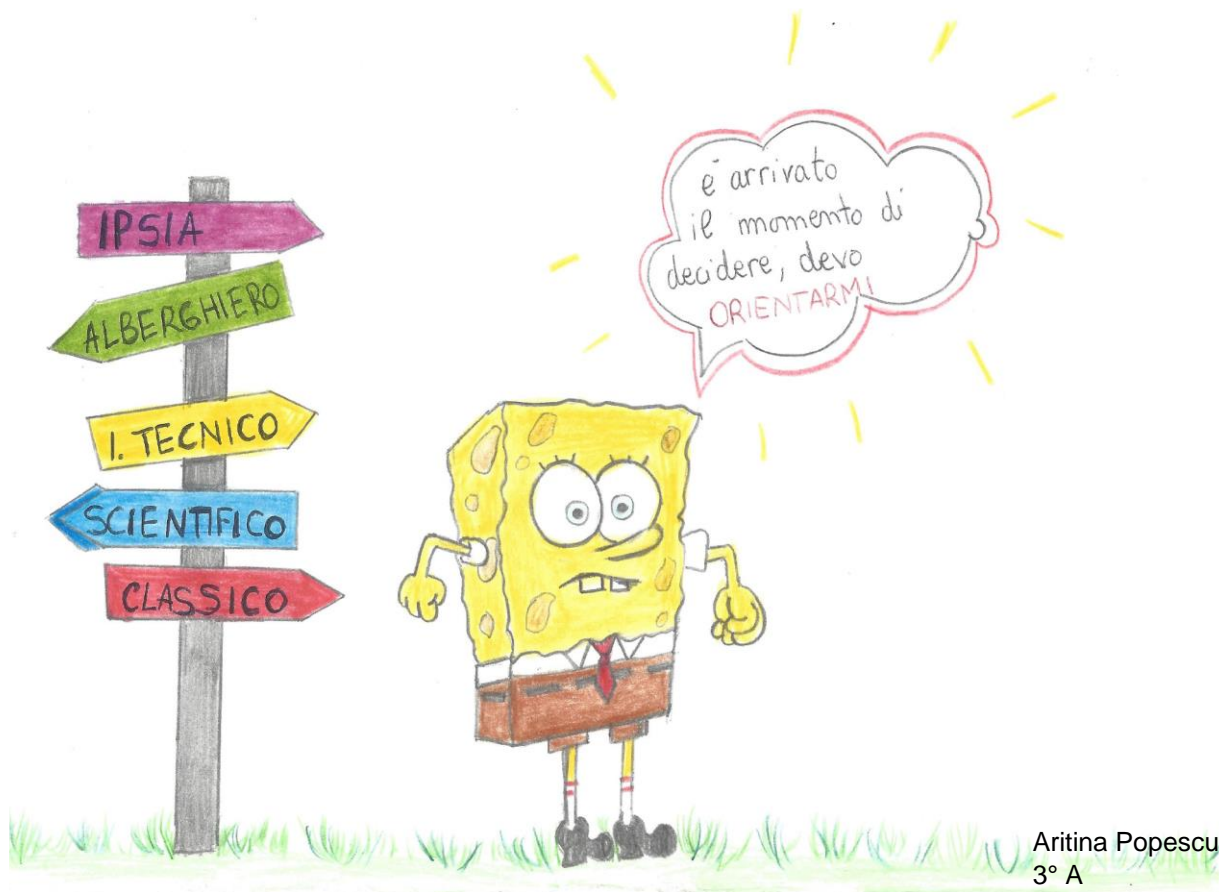 IPSIA
ALBERGHIERO
I. TECNICO
SCIENTIFICO
CLASSICO
è arrivato
il momento di
decidere, devo
ORIENTARMI
Aritina Popescu
3° A